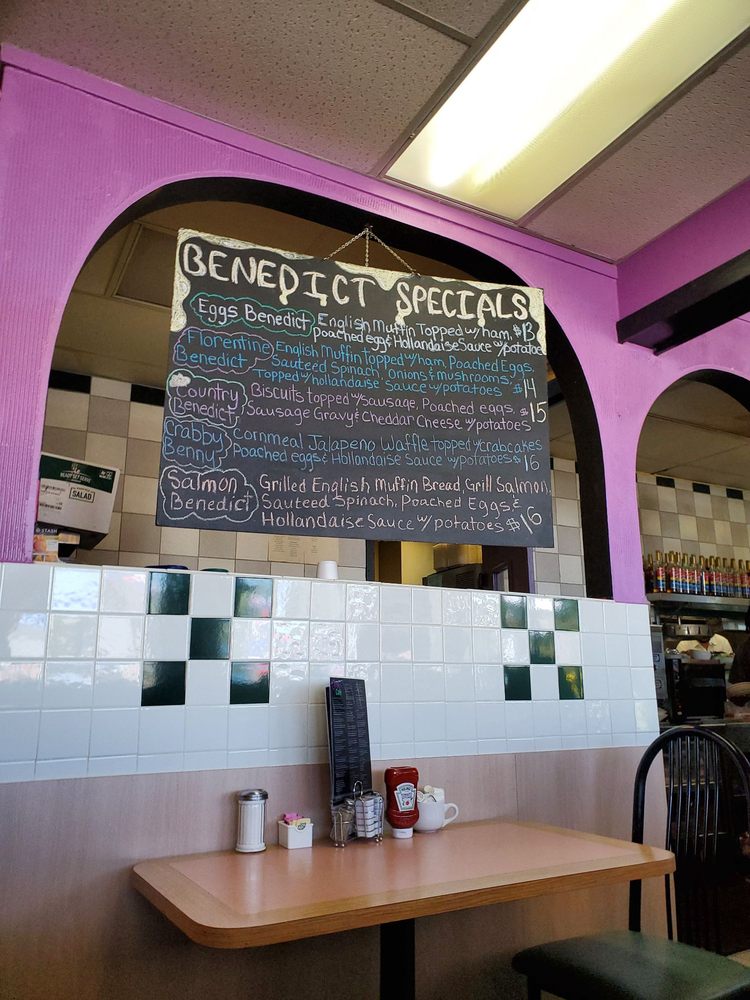 BENEDICT SPECIALS
Eggs Benedict English Muffin Topped w/ ham, $13
poached egg & Hollandaise Sauce w/ potatoe
Florentine English Muffin topped w/ ham Poached Eggs
Benedict Sauteed Spinach, Onions & mushrooms
Topped w/ hollandaise Sauce w/ potatoes $14
Country Biscuits topped w/ sausage, Poached eggs, $15
Benedict Sausage Gravy & Cheddar Cheese w/ potatoes
Crabby Cornmeal Jalapeno Waffle topped w/ crabcakes
Benny Poached eggs & Hollandaise Sauce w/ potatoes $16
Salmon Grilled English Muffin Bread, Grill Salmon,
Benedict Sauteed Spinach, Poached Eggs &
Hollandaise Sauce w/ potatoes $16
READY-SET-SERVE
SALAD
STASH
HEINZ